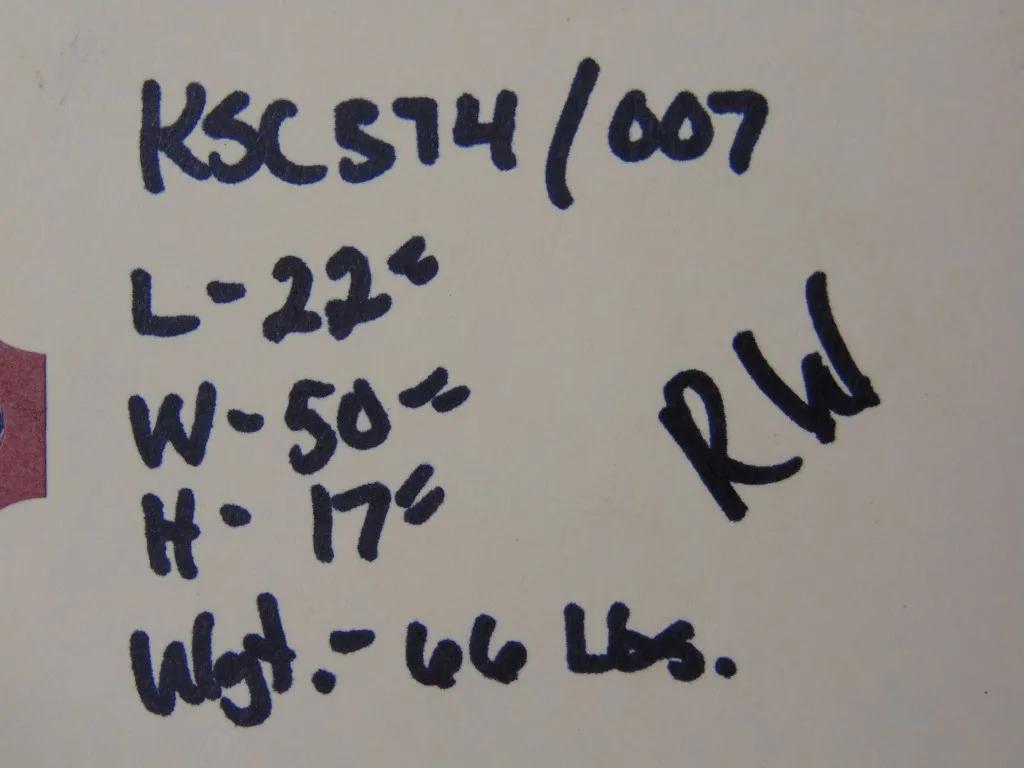 KSC574/007
L-22"
W-50"
H-17"
Wlgt.-66 Lbs.
RW